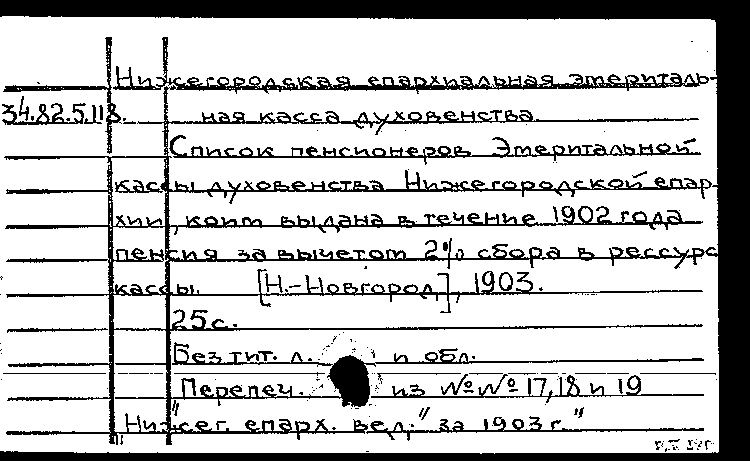 Нижегородская епархиальная эмериталь-
34.82.5.118. ная касса духовенства.
Список пенсионеров Эмеритальной
кассы духовенства Нижегородской епар-
хии, коим выдана в течение 1902 года
пенсия за вычетом 2% сбора в рессурс
кассы. [Н.-Новгород], 1903.
25с.
Без тит. л. и обл.
Перепеч. из №№ 17, 18 и 19
"Нижег. епарх. вед." за 1903 г."